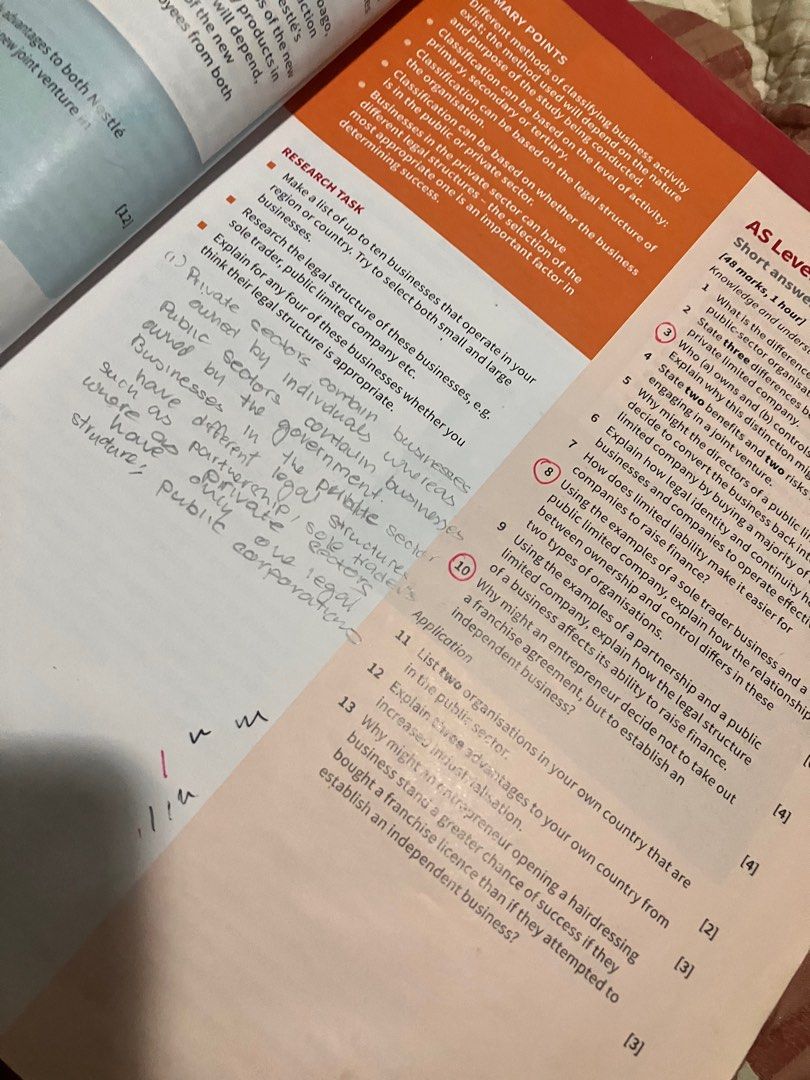 oago,
estlé's
uction
s of the new
products in
will depend,
of the new
yees from both
advantages to both Nestlé
new joint venture in
[12]
MARY POINTS
Different methods of classifying business activity
exist; the method used will depend on the nature
and purpose of the study being conducted.
Classification can be based on the level of activity:
primary, secondary or tertiary.
Classification can be based on the legal structure of
the organisation.
Classification can be based on whether the business
is in the public or private sector.
Businesses in the private sector can have
different legal structures – the selection of the
most appropriate one is an important factor in
determining success.
RESEARCH TASK
Make a list of up to ten businesses that operate in your
region or country. Try to select both small and large
businesses.
Research the legal structure of these businesses, e.g.
sole trader, public limited company etc.
Explain for any four of these businesses whether you
think their legal structure is appropriate.
(1) Private sectors contain businesses
owned by individuals whereas
Public sectors contain businesses
owned by the government.
Businesses in the private sector
have different legal structures
such as partnership, sole traders
where as private sectors
have only one legal
structure; public corporations
AS Leve
Short answ
[48 marks, 1 hour
Knowledge and unders
1 What is the difference
public-sector organisa
2 State three differences
private limited company.
3 Who (a) owns and (b) controls
Explain why this distinction mi
4 State two benefits and two risks
engaging in a joint venture.
5 Why might the directors of a public li
decide to convert the business back in
limited company by buying a majority of
6 Explain how legal identity and continuity h
businesses and companies to operate effecti
7 How does limited liability make it easier for
companies to raise finance?
8 Using the examples of a sole trader business and a
public limited company, explain how the relationship
between ownership and control differs in these
two types of organisations.
9 Using the examples of a partnership and a public
limited company, explain how the legal structure
of a business affects its ability to raise finance.
10 Why might an entrepreneur decide not to take out
a franchise agreement, but to establish an
independent business?
[4]
[4]
Application
11 List two organisations in your own country that are
in the public sector.
[2]
12 Explain three advantages to your own country from
increased industrialisation.
[3]
13 Why might an entrepreneur opening a hairdressing
business stand a greater chance of success if they
bought a franchise licence than if they attempted to
establish an independent business?
[3]